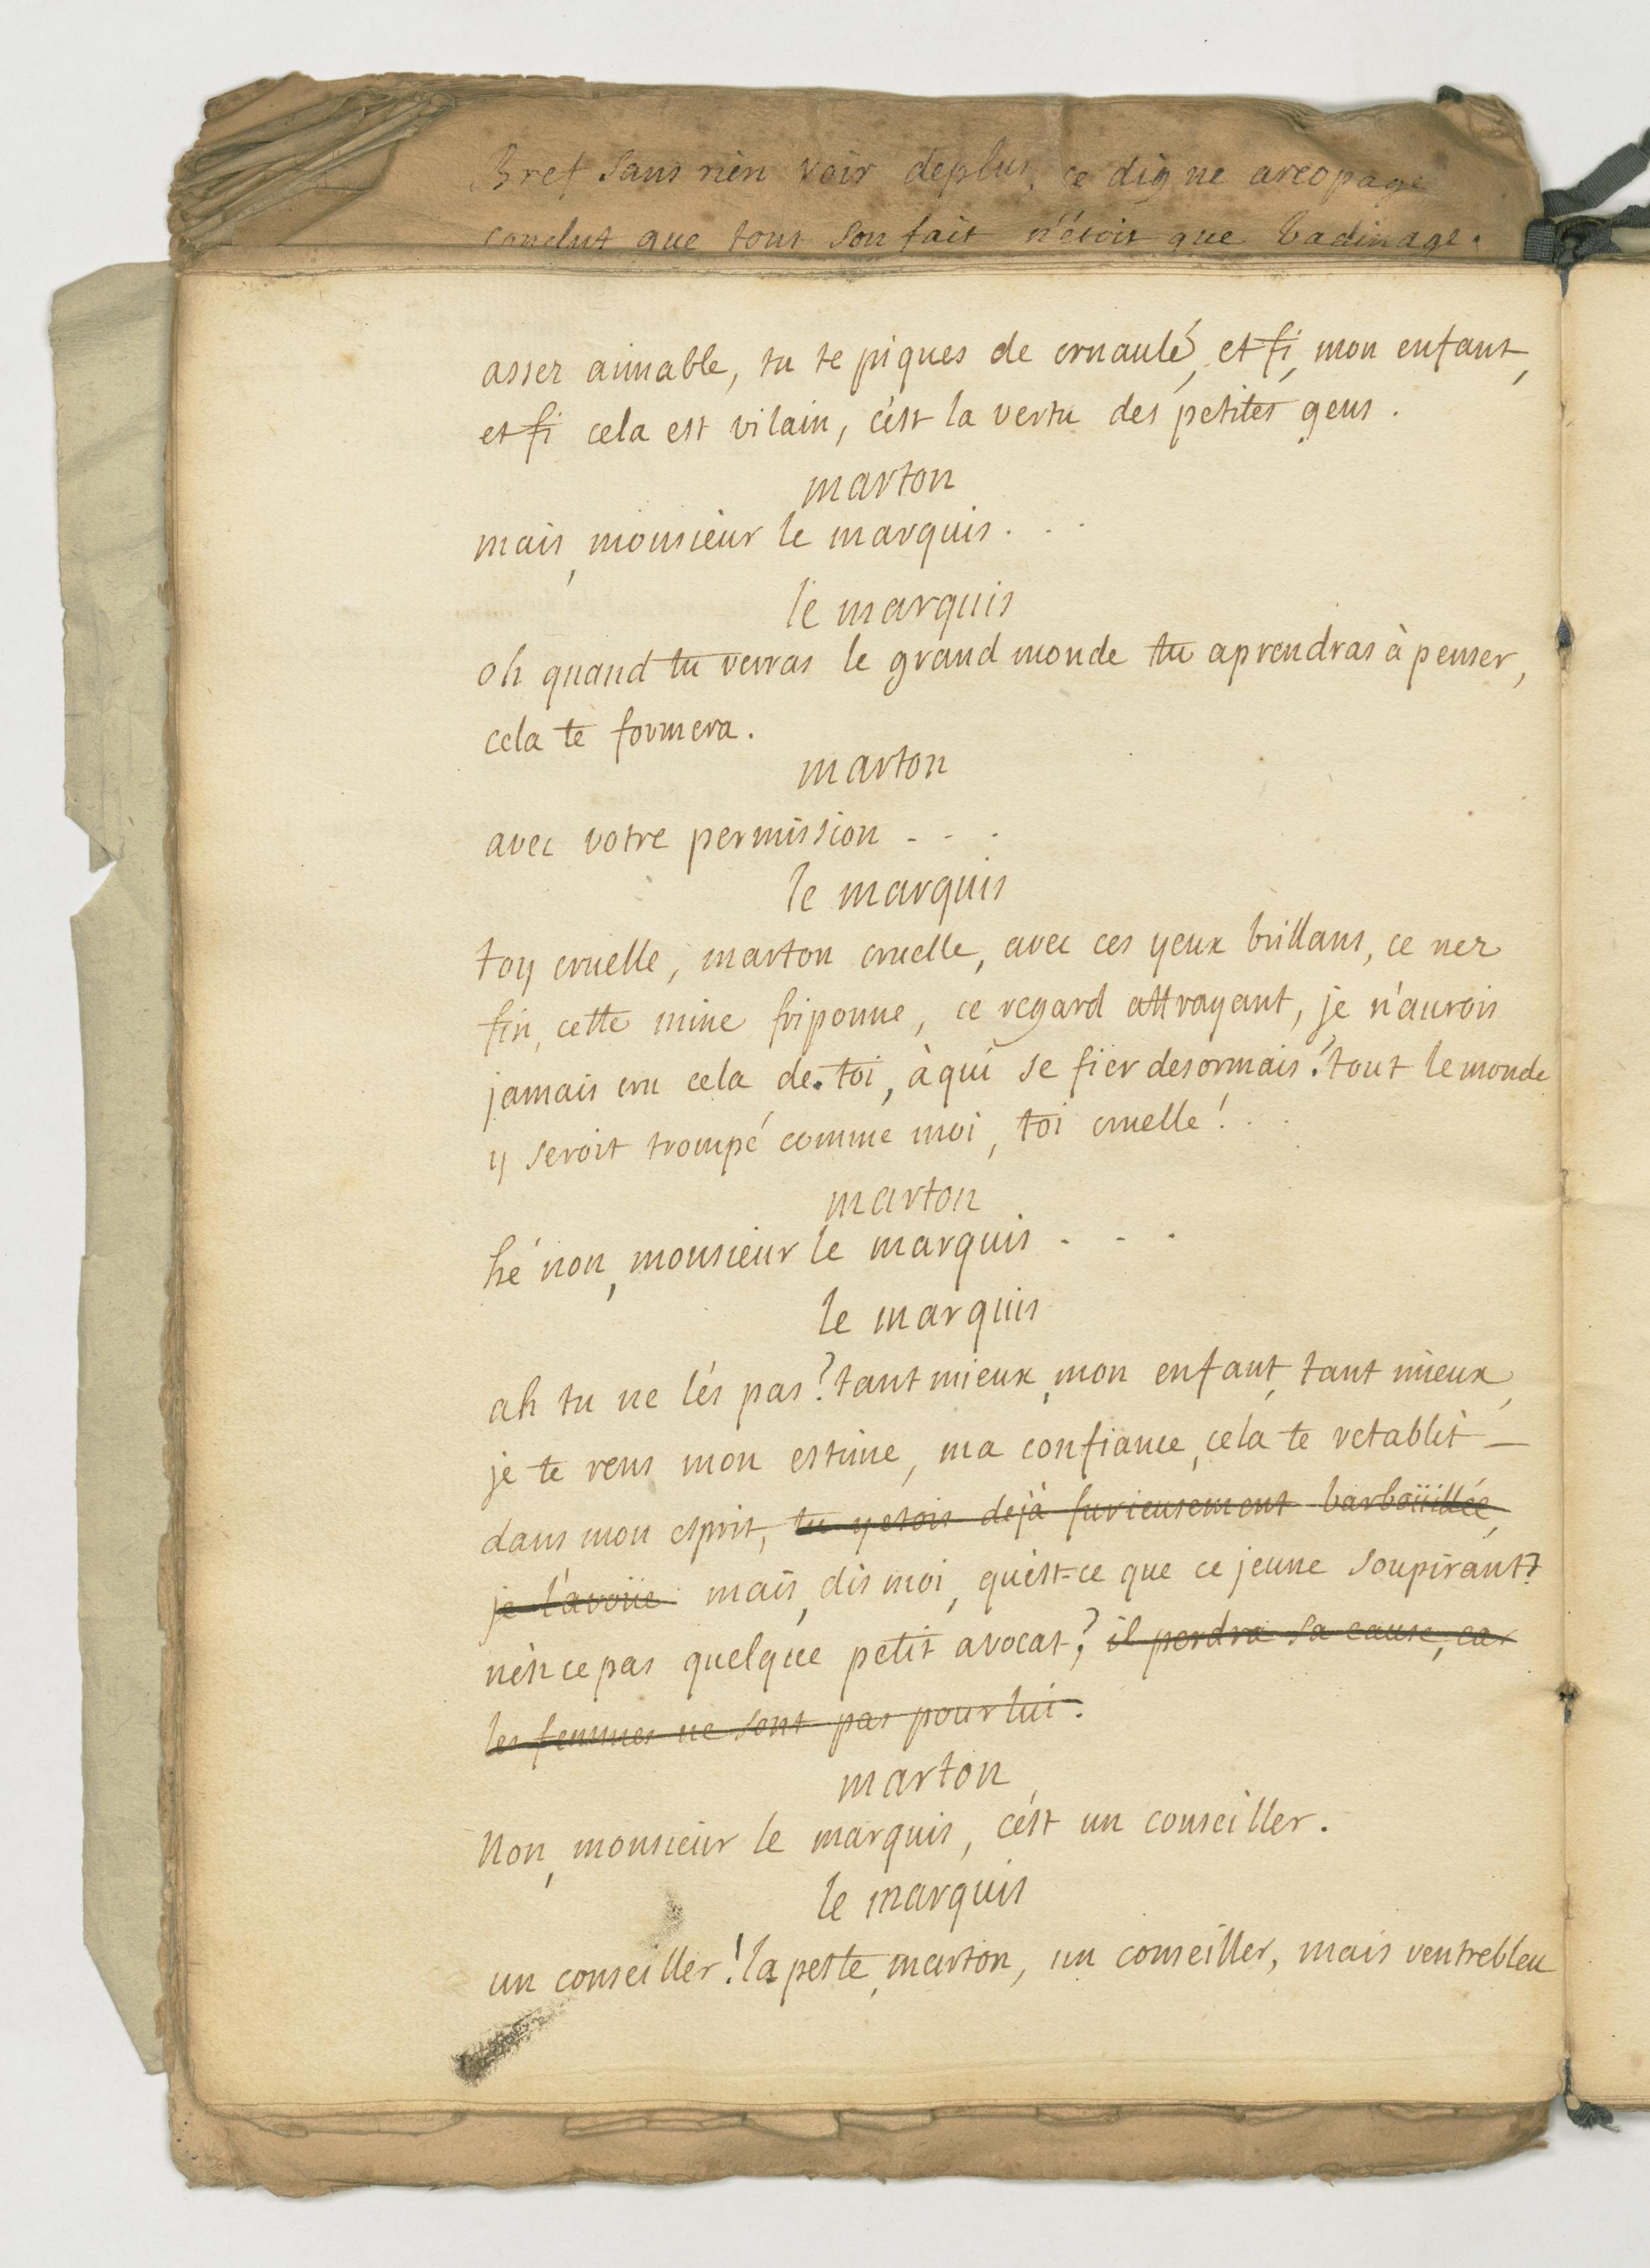 Bref sans rien voir deplus, ce digne areopage
conclut que tout son fait n'étoit que badinage.
assez aimable, tu te piques de cruauté, et fi, mon enfant,
et fi cela est vilain, c'est la vertu des petites gens.
marton
mais, monsieur le marquis. . .
le marquis
oh quand tu verras le grand monde tu aprendras à penser,
cela te formera.
marton
avec votre permission - - -
le marquis
toy cruelle, marton cruelle, avec ces yeux brillans, ce nez
fin, cette mine friponne, ce regard attrayant, je n'aurois
jamais cru cela de toi, à qui se fier desormais? tout le monde
y seroit trompé comme moi, toi cruelle! . .
marton
hé non, monsieur le marquis - - -
le marquis
ah tu ne l'és pas? tant mieux, mon enfant, tant mieux,
je te rens mon estime, ma confiance, cela te retablit -
dans mon esprit, tu y etois dejà furieusement barboüillée,
je l'avoüe. mais, dis moi, qu'est=ce que ce jeune soupirant?
n'est ce pas quelque petit avocat? il perdra sa cause, car
les femmes ne sont pas pour lui.
marton
Non, monsieur le marquis, c'est un conseiller.
le marquis
un conseiller! la peste, marton, un conseiller, mais ventrebleu